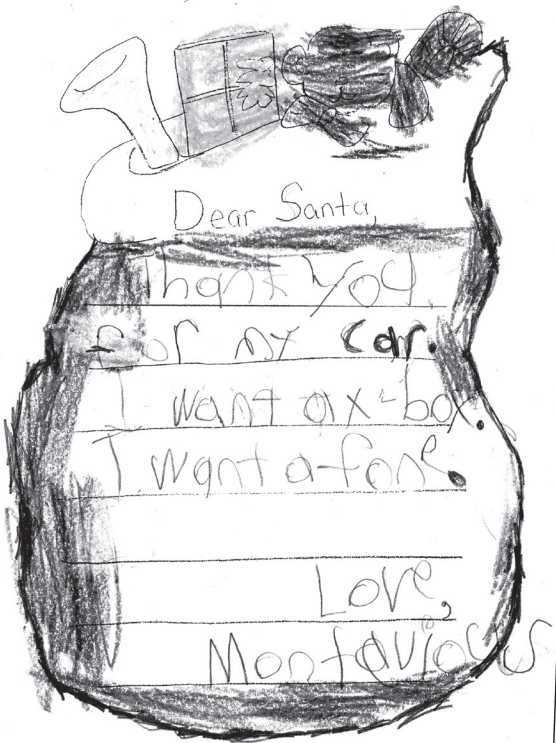 Dear Santa,
Thank you
for my car.
I want a x-box.
I want a fone.
Love,
Montavious